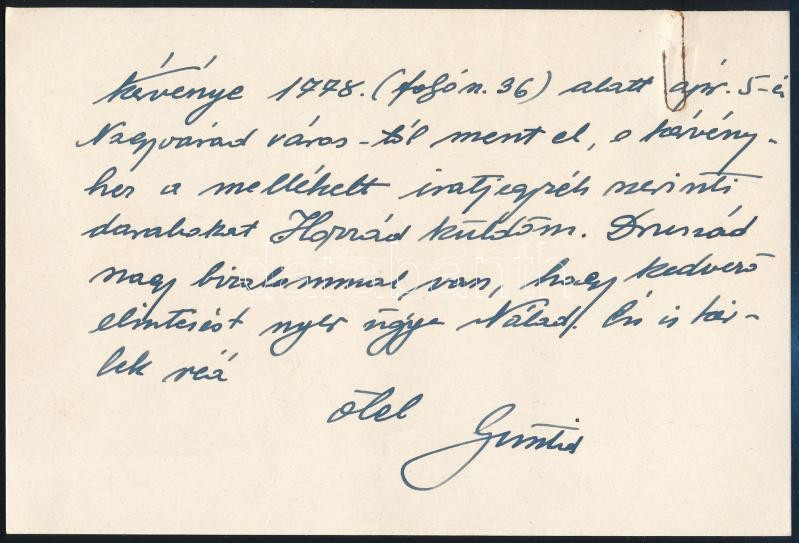 kérvénye 1778. (fogón. 36) alatt ápr. 5-én
Nagyvárad város-tól ment el, e kérvény-
hez a mellékelt iratjegyzék szerinti
darabokat Hozzád küldöm. Druszád
nagy bizalommal van, hogy kedvező
elintézést nyer ügye Nálad. Én is kér-
lek reá
ölel
darabanth